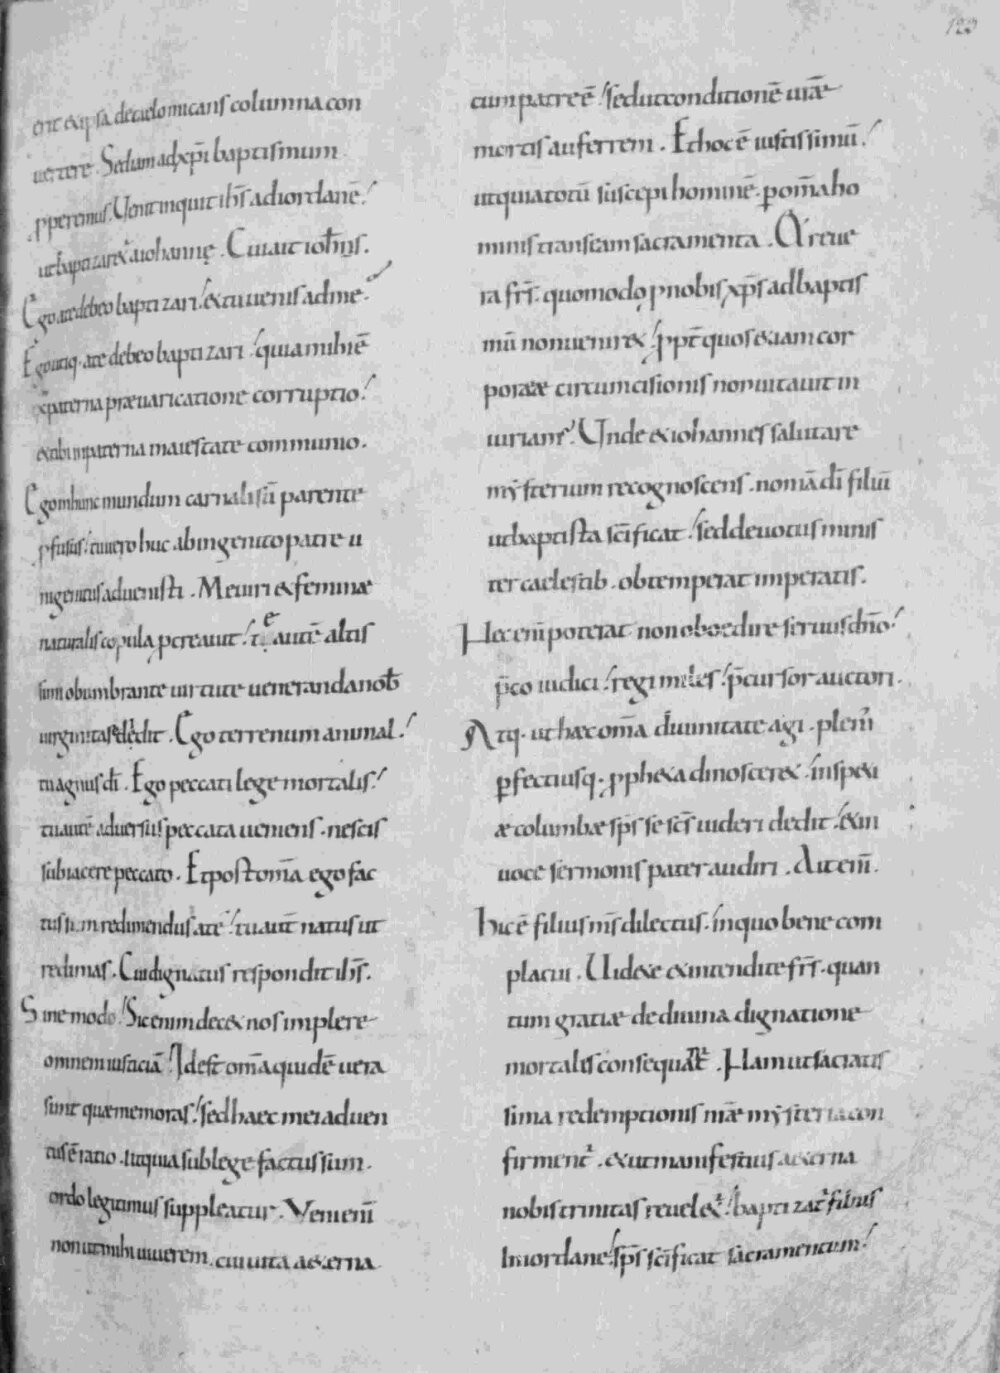 123
erit & ipsa de caelo micans columna con
uertere. Sed iam ad xp̄i baptismum
pperemus. Uenit inquit ih̄s ad iordanē
ut baptizaret᷑ a iohanne. Cui ait ioh̄nis.
Ego a te debeo baptizari & tu uenis ad me.
Ego utiq· a te debeo baptizari quia mihi ē
ex paterna præuaricatione corruptio
& tibi in paterna maiestate communio.
Ego in hunc mundum carnali sū parente
pfusus tu uero huc ab ingenito patre u
nigenitus aduenisti. Me uiri & feminæ
naturalis copula pcreauit te autē altis
simi obumbrante uirtute ueneranda nob̄
uirginitas edidit. Ego terrenum animal
tu agnus dī. Ego peccati lege mortalis
tu autē aduersus peccata ueniens. nescis
subiacere peccato. Et post om̄a ego fac
tus sum redimendus a te tu aut̄ natus ut
redimas. Cui dignatus respondit ih̄s.
Sine modo Sic enim decet nos implere
omnem iusticiā Idest om̄a quidē uera
sunt quæ memoras sed haec mei aduen
tus ē ratio. ut quia sub lege factus sum.
ordo legitimus suppleatur. Ueni enī
non ut mihi uiuerem. cui uita aeterna
cum patre ē sed ut conditionē uitæ
mortis auferrem. Et hoc ē iustissimū
ut quia totū suscepi hominē. p om̄a ho
minis transeam sacramenta. At reue
ra fr̄s. quomodo p nobis xp̄s ad baptis
mū non ueniret ppt̄ quos etiam cor
poratæ circumcisionis non uitauit in
iurians Unde & iohannes salutare
mẏsterium recognoscens. non iā dī filiū
ut baptista scīficat sed deuotus minis
ter caelestib. obtemperat imperatis.
Nec eni poterat non oboedire seruus dn̄o
p̄co iudici regi miles p̄cursor auctori.
Atq· ut haec om̄a diuinitate agi. pleni
perfectiusq· pph&a dinoscer&. in speci
æ columbæ sp̄s se sc̄s uideri dedit & in
uoce sermonis pater audiri. Ait enī.
hic ē filius m̄s dilectus. in quo bene com
placui. Uidete & intendite fr̄s. quan
tum gratiæ de diuina dignatione
mortalis consequat᷑. Nam ut sacratis
sima redemptionis nr̄æ mẏsteria con
firment᷑. & ut manifestius aeterna
nobis trinitas reuelet᷑ baptizat᷑ filius
In iordane sp̄s scīficat sacramentum